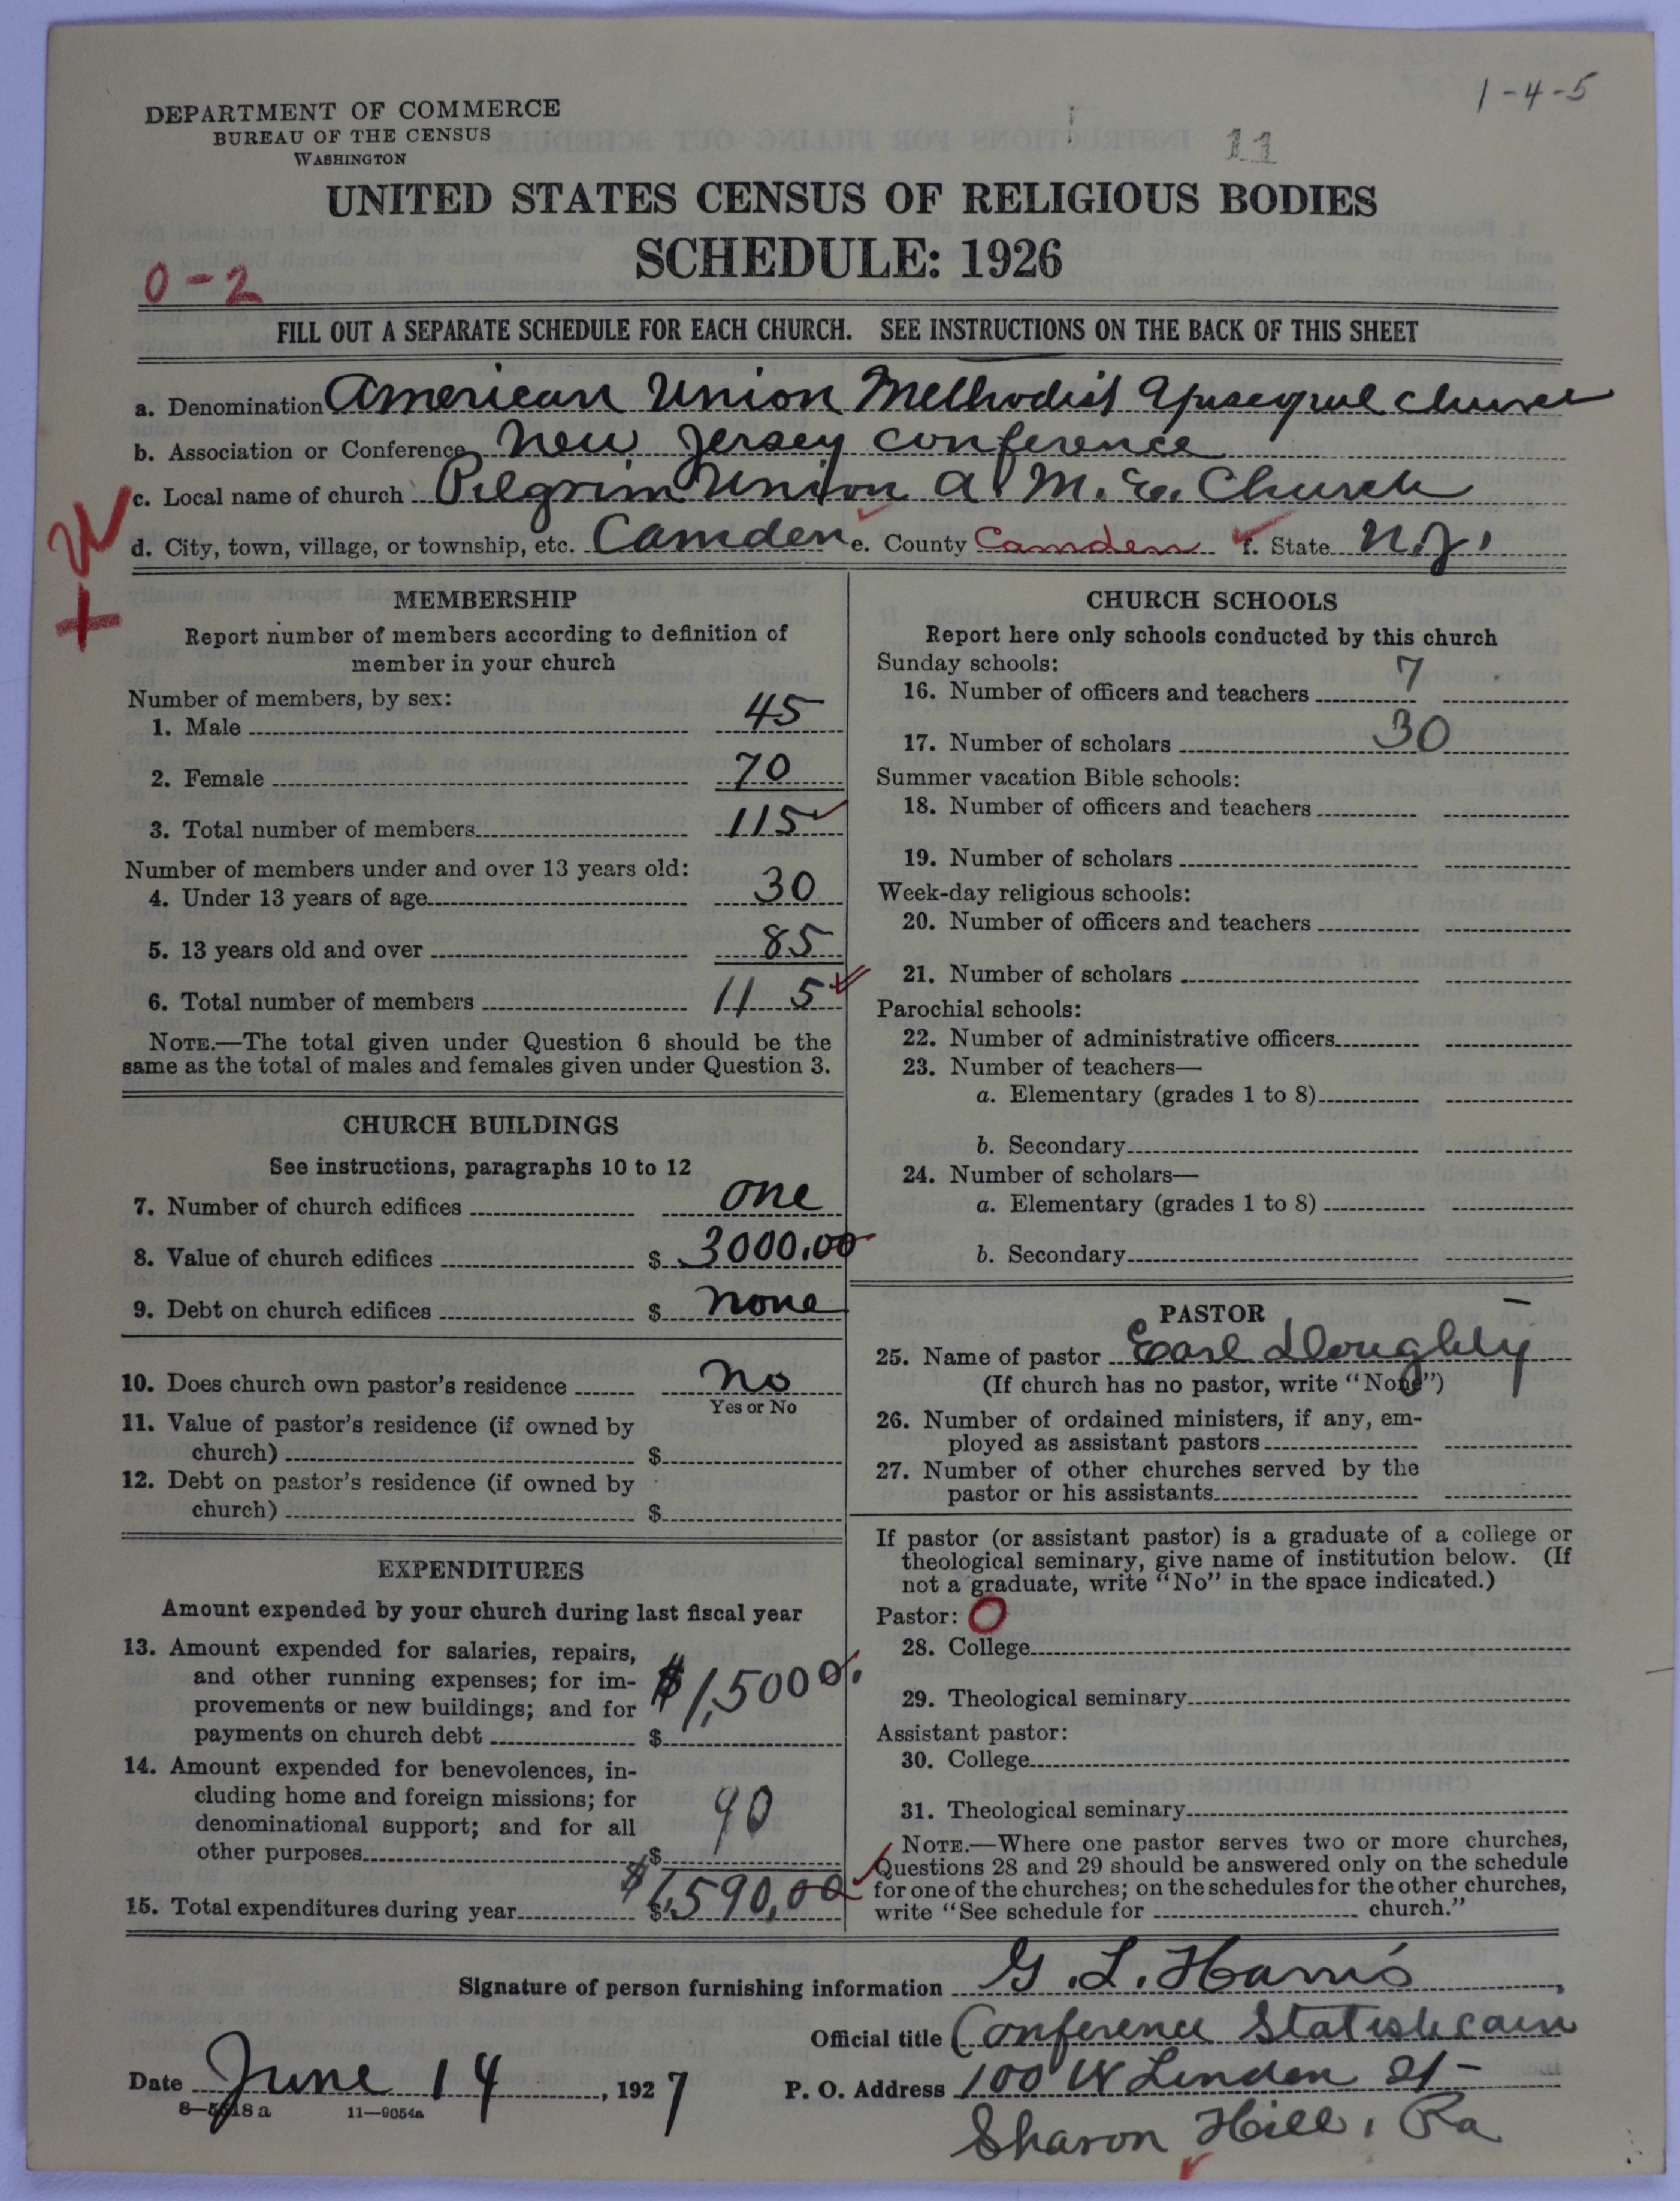 1-4-5
DEPARTMENT OF COMMERCE
BUREAU OF THE CENSUS
WASHINGTON
11
UNITED STATES CENSUS OF RELIGIOUS BODIES
SCHEDULE: 1926
0-2
FILL OUT A SEPARATE SCHEDULE FOR EACH CHURCH. SEE INSTRUCTIONS ON THE BACK OF THIS SHEET
a. Denomination American Union Methodist Episcopal church
b. Association or Conference New Jersey conference
c. Local name of church Pilgrim Union A. M. E. Church
d. City, town, village, or township, etc. Camden e. County Camden f. State N.J.
MEMBERSHIP
Report number of members according to definition of
member in your church
Number of members, by sex:
1. Male 45
2. Female 70
3. Total number of members 115
Number of members under and over 13 years old:
4. Under 13 years of age 30
5. 13 years old and over 85
6. Total number of members 115
NOTE.—The total given under Question 6 should be the
same as the total of males and females given under Question 3.
CHURCH BUILDINGS
See instructions, paragraphs 10 to 12
7. Number of church edifices one
8. Value of church edifices $ 3000.00
9. Debt on church edifices $ none
10. Does church own pastor's residence No
Yes or No
11. Value of pastor's residence (if owned by
church) $
12. Debt on pastor's residence (if owned by
church) $
EXPENDITURES
Amount expended by your church during last fiscal year
13. Amount expended for salaries, repairs,
and other running expenses; for im-
provements or new buildings; and for
payments on church debt $ $1,50000
14. Amount expended for benevolences, in-
cluding home and foreign missions; for
denominational support; and for all
other purposes $ 90
15. Total expenditures during year $ $1,590,00
CHURCH SCHOOLS
Report here only schools conducted by this church
Sunday schools:
16. Number of officers and teachers 7
17. Number of scholars 30
Summer vacation Bible schools:
18. Number of officers and teachers
19. Number of scholars
Week-day religious schools:
20. Number of officers and teachers
21. Number of scholars
Parochial schools:
22. Number of administrative officers
23. Number of teachers—
a. Elementary (grades 1 to 8)
b. Secondary
24. Number of scholars—
a. Elementary (grades 1 to 8)
b. Secondary
PASTOR
25. Name of pastor Earl Doughty
(If church has no pastor, write "None")
26. Number of ordained ministers, if any, em-
ployed as assistant pastors
27. Number of other churches served by the
pastor or his assistants
If pastor (or assistant pastor) is a graduate of a college or
theological seminary, give name of institution below. (If
not a graduate, write "No" in the space indicated.)
Pastor: O
28. College
29. Theological seminary
Assistant pastor:
30. College
31. Theological seminary
NOTE.—Where one pastor serves two or more churches,
Questions 28 and 29 should be answered only on the schedule
for one of the churches; on the schedules for the other churches,
write "See schedule for church."
Signature of person furnishing information G. L. Harris
Official title Conference Statistician
Date June 14, 1927 P. O. Address 100 W Linden St
8—5518a 11—9054a
Sharon Hill, Pa